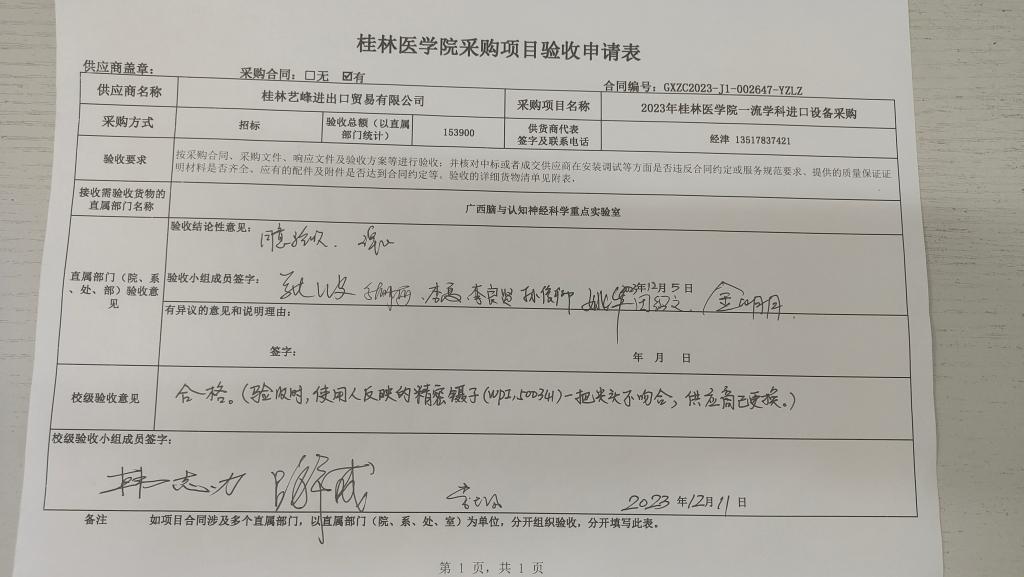 桂林医学院采购项目验收申请表
供应商盖章： 采购合同：□无 ☑有 合同编号：GXZC2023-J1-002647-YZLZ
供应商名称 桂林艺峰进出口贸易有限公司 采购项目名称 2023年桂林医学院一流学科进口设备采购
采购方式 招标 验收总额（以直属部门统计） 153900 供货商代表签字及联系电话 经津 13517837421
验收要求 按采购合同、采购文件、响应文件及验收方案等进行验收；并核对中标或者成交供应商在安装调试等方面是否违反合同约定或服务规范要求、提供的质量保证证
明材料是否齐全、应有的配件及附件是否达到合同约定等。验收的详细货物清单见附表。
接收需验收货物的
直属部门名称 广西脑与认知神经科学重点实验室
直属部门（院、系
、处、部）验收意
见
验收结论性意见： 同意验收.
验收小组成员签字： 李良 孙信卿 金明月
2023年12月5日
有异议的意见和说明理由：
签字： 年 月 日
校级验收意见 合格。（验收时，使用人反映的精密镊子（WPI,500341）一把尖头不吻合，供应商已更换。）
校级验收小组成员签字：
韩志力
2023年12月11日
备注 如项目合同涉及多个直属部门，以直属部门（院、系、处、室）为单位，分开组织验收，分开填写此表。
第 1 页，共 1 页